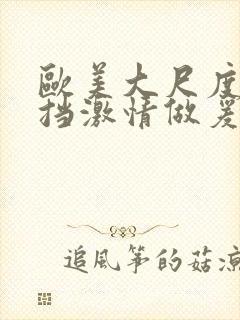 歐美大尺度
挡激情做爰
追風筝的菇凉